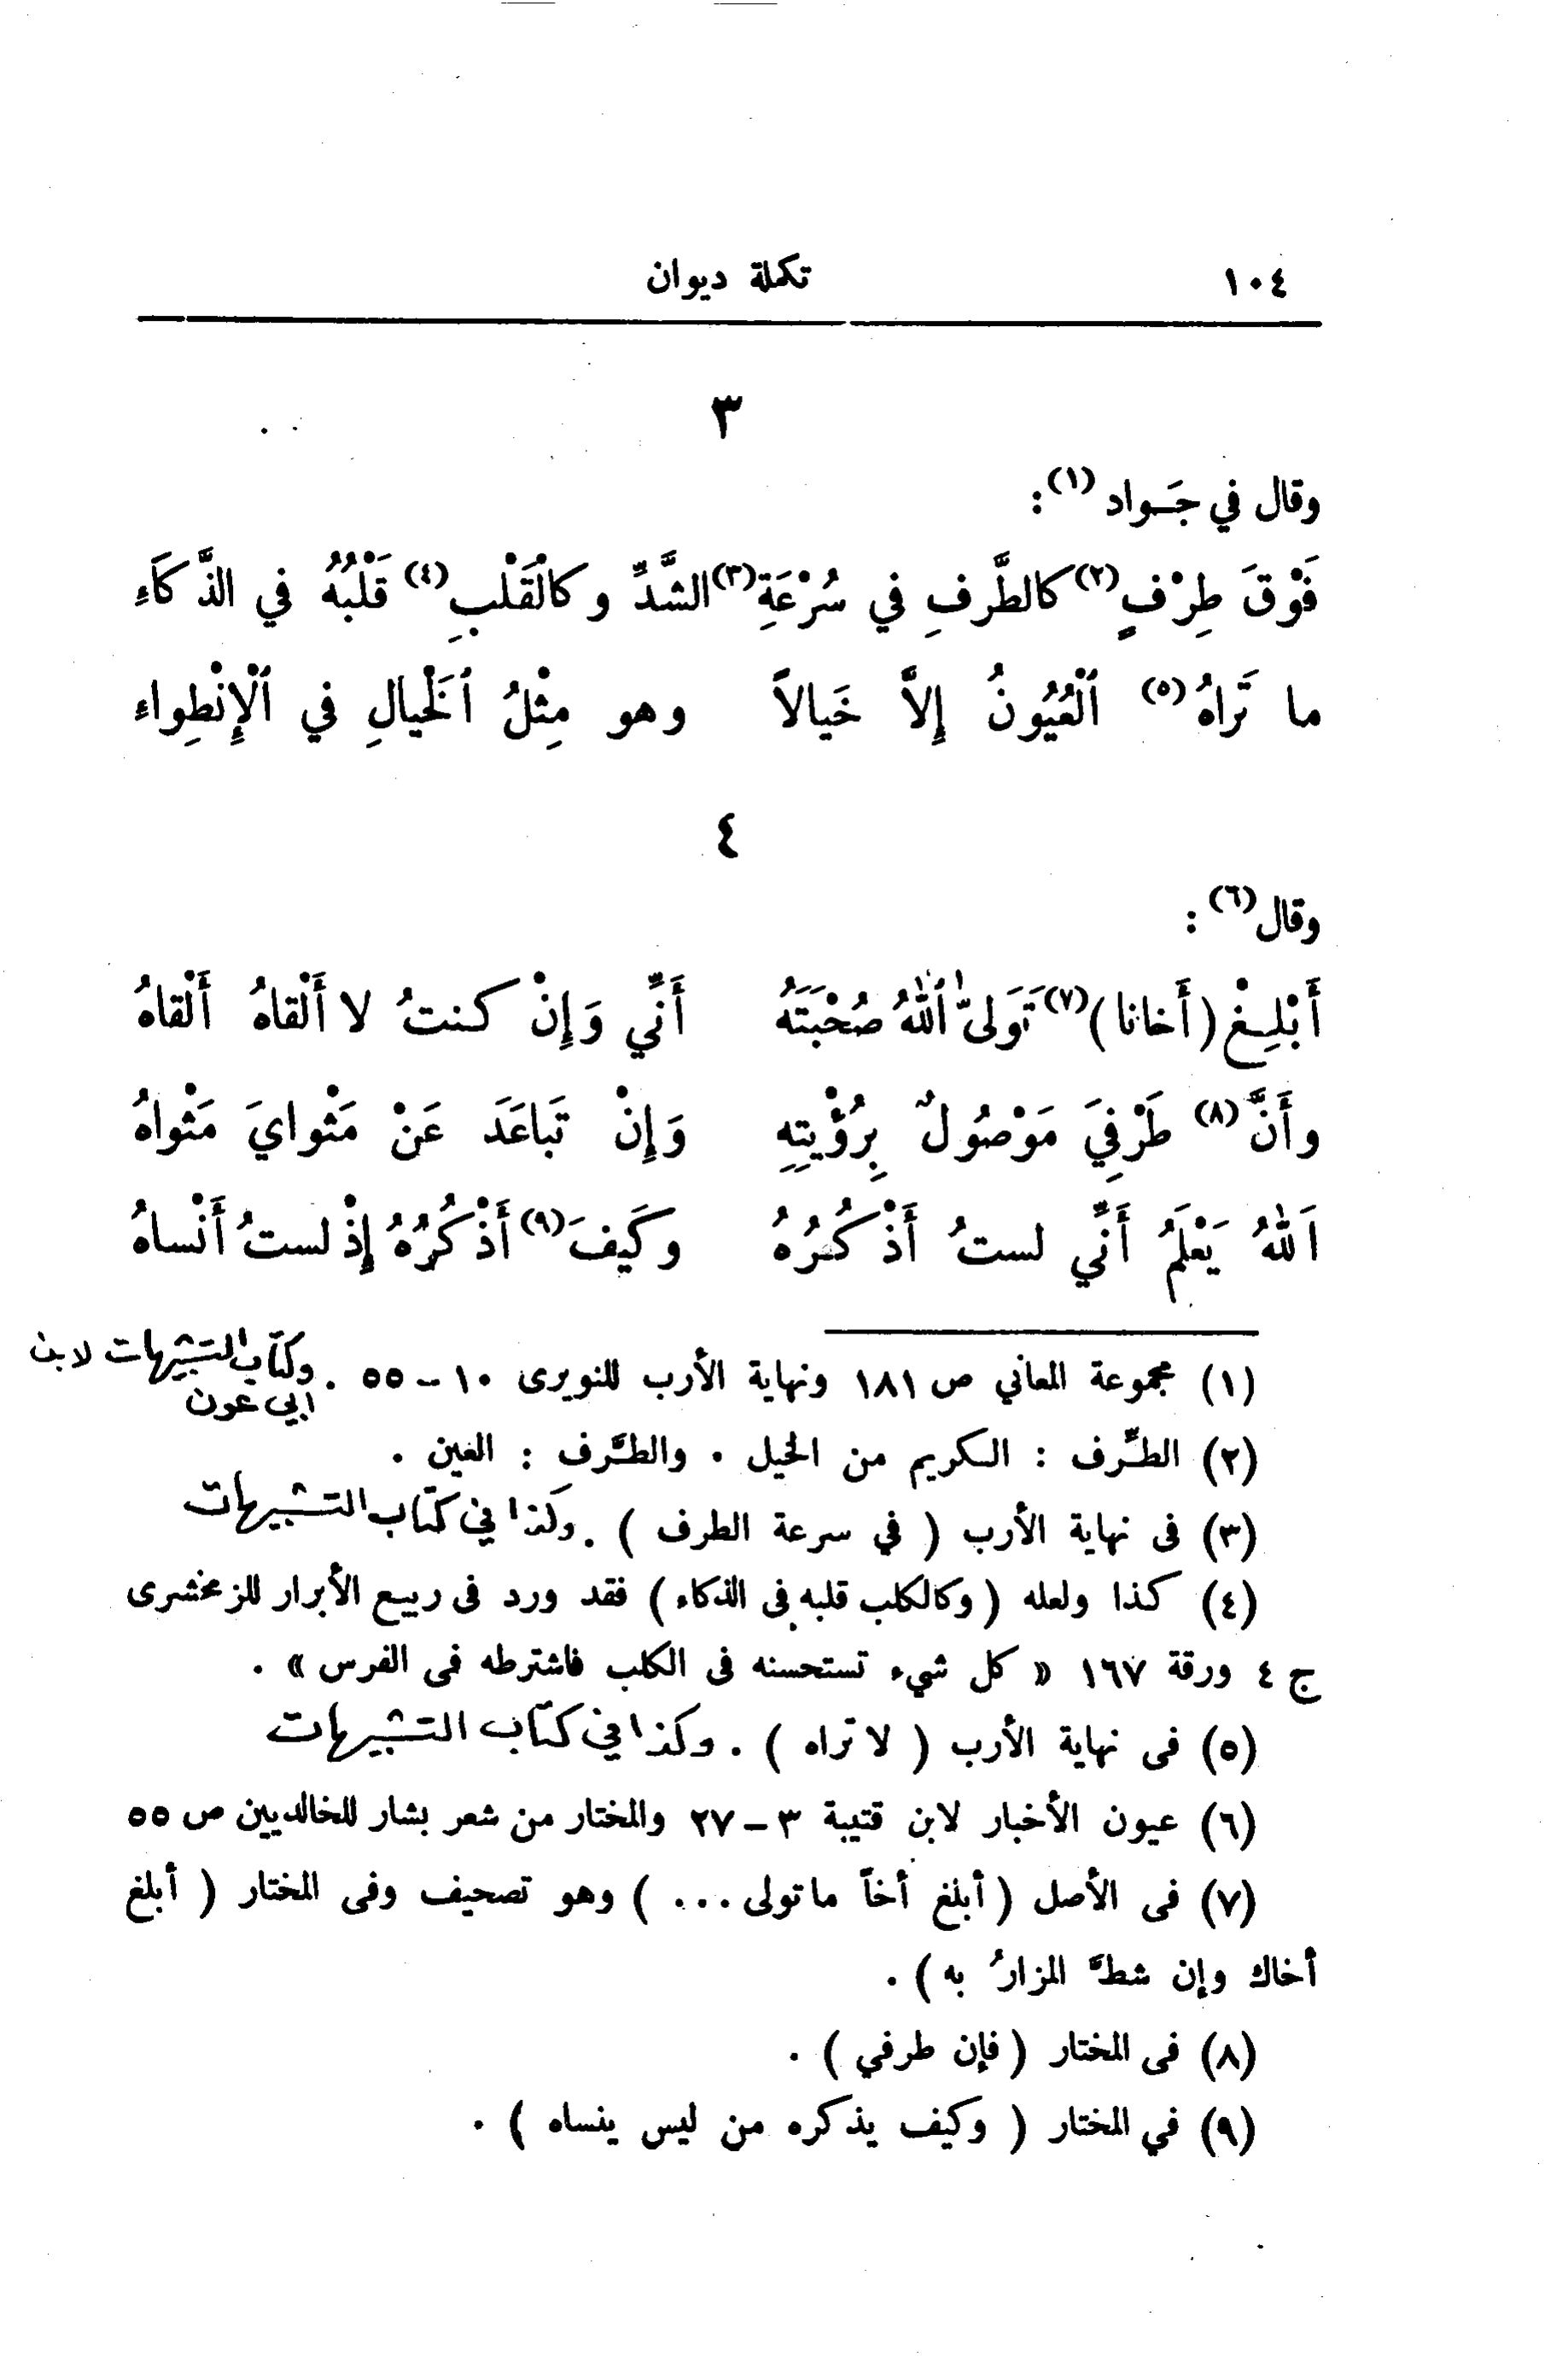 ١٠٤ تكملة ديوان
٣
وقال في جَـواد (١) :
فَوْقَ طِرْفٍ (٢) كالطَّرفِ في سُرْعَةِ (٣) الشَّدِّ وكالْقَلْبِ (٤) قَلْبُهُ في الذَّكَاءِ
ما تَراهُ (٥) ٱلْعُيُونُ إِلاَّ خَيالاً وهو مِثْلُ ٱلْخَيالِ في ٱلْإِنْطِواءِ
٤
وقال (٦) :
أَبْلِـغْ (أَخانا) (٧) تَوَلىَّ ٱللهُ صُحْبَتَهُ أَنِّي وَإِنْ كنتُ لا أَلْقاهُ أَلْقاهُ
وأَنَّ (٨) طَرْفِيَ مَوْصُولٌ بِرُؤْيتِهِ وَإِنْ تَباعَدَ عَنْ مَثْوايَ مَثْواهُ
اَللهُ يَعْلَمُ أَنِّي لستُ أَذْكُرُهُ وكَيفَ (٩) أَذْكُرُهُ إِذْ لستُ أَنْساهُ
(١) مجموعة المعاني ص ١٨١ ونهاية الأرب للنويرى ١٠ – ٥٥ . وكتاب التشبيهات لابن
ابي عون
(٢) الطِّرف : الكريم من الخيل . والطَّرف : العين .
(٣) فى نهاية الأرب ( في سرعة الطرف ) . وكذا في كتاب التشبيهات
(٤) كذا ولعله ( وكالكلب قلبه فى الذكاء ) فقد ورد فى ربيع الأبرار للزمخشرى
ج ٤ ورقة ١٦٧ « كل شيء تستحسنه فى الكلب فاشترطه فى الفرس » .
(٥) فى نهاية الأرب ( لا تراه ) . وكذا في كتاب التشبيهات
(٦) عيون الأخبار لابن قتيبة ٣ – ٢٧ والمختار من شعر بشار للخالديين ص ٥٥
(٧) فى الأصل ( أبلغ أخاً ما تولى . . . ) وهو تصحيف وفى المختار ( أبلغ
أخاك وإن شطَّ المزارُ به ) .
(٨) فى المختار ( فإن طرفي ) .
(٩) في المختار ( وكيف يذكره من ليس ينساه ) .